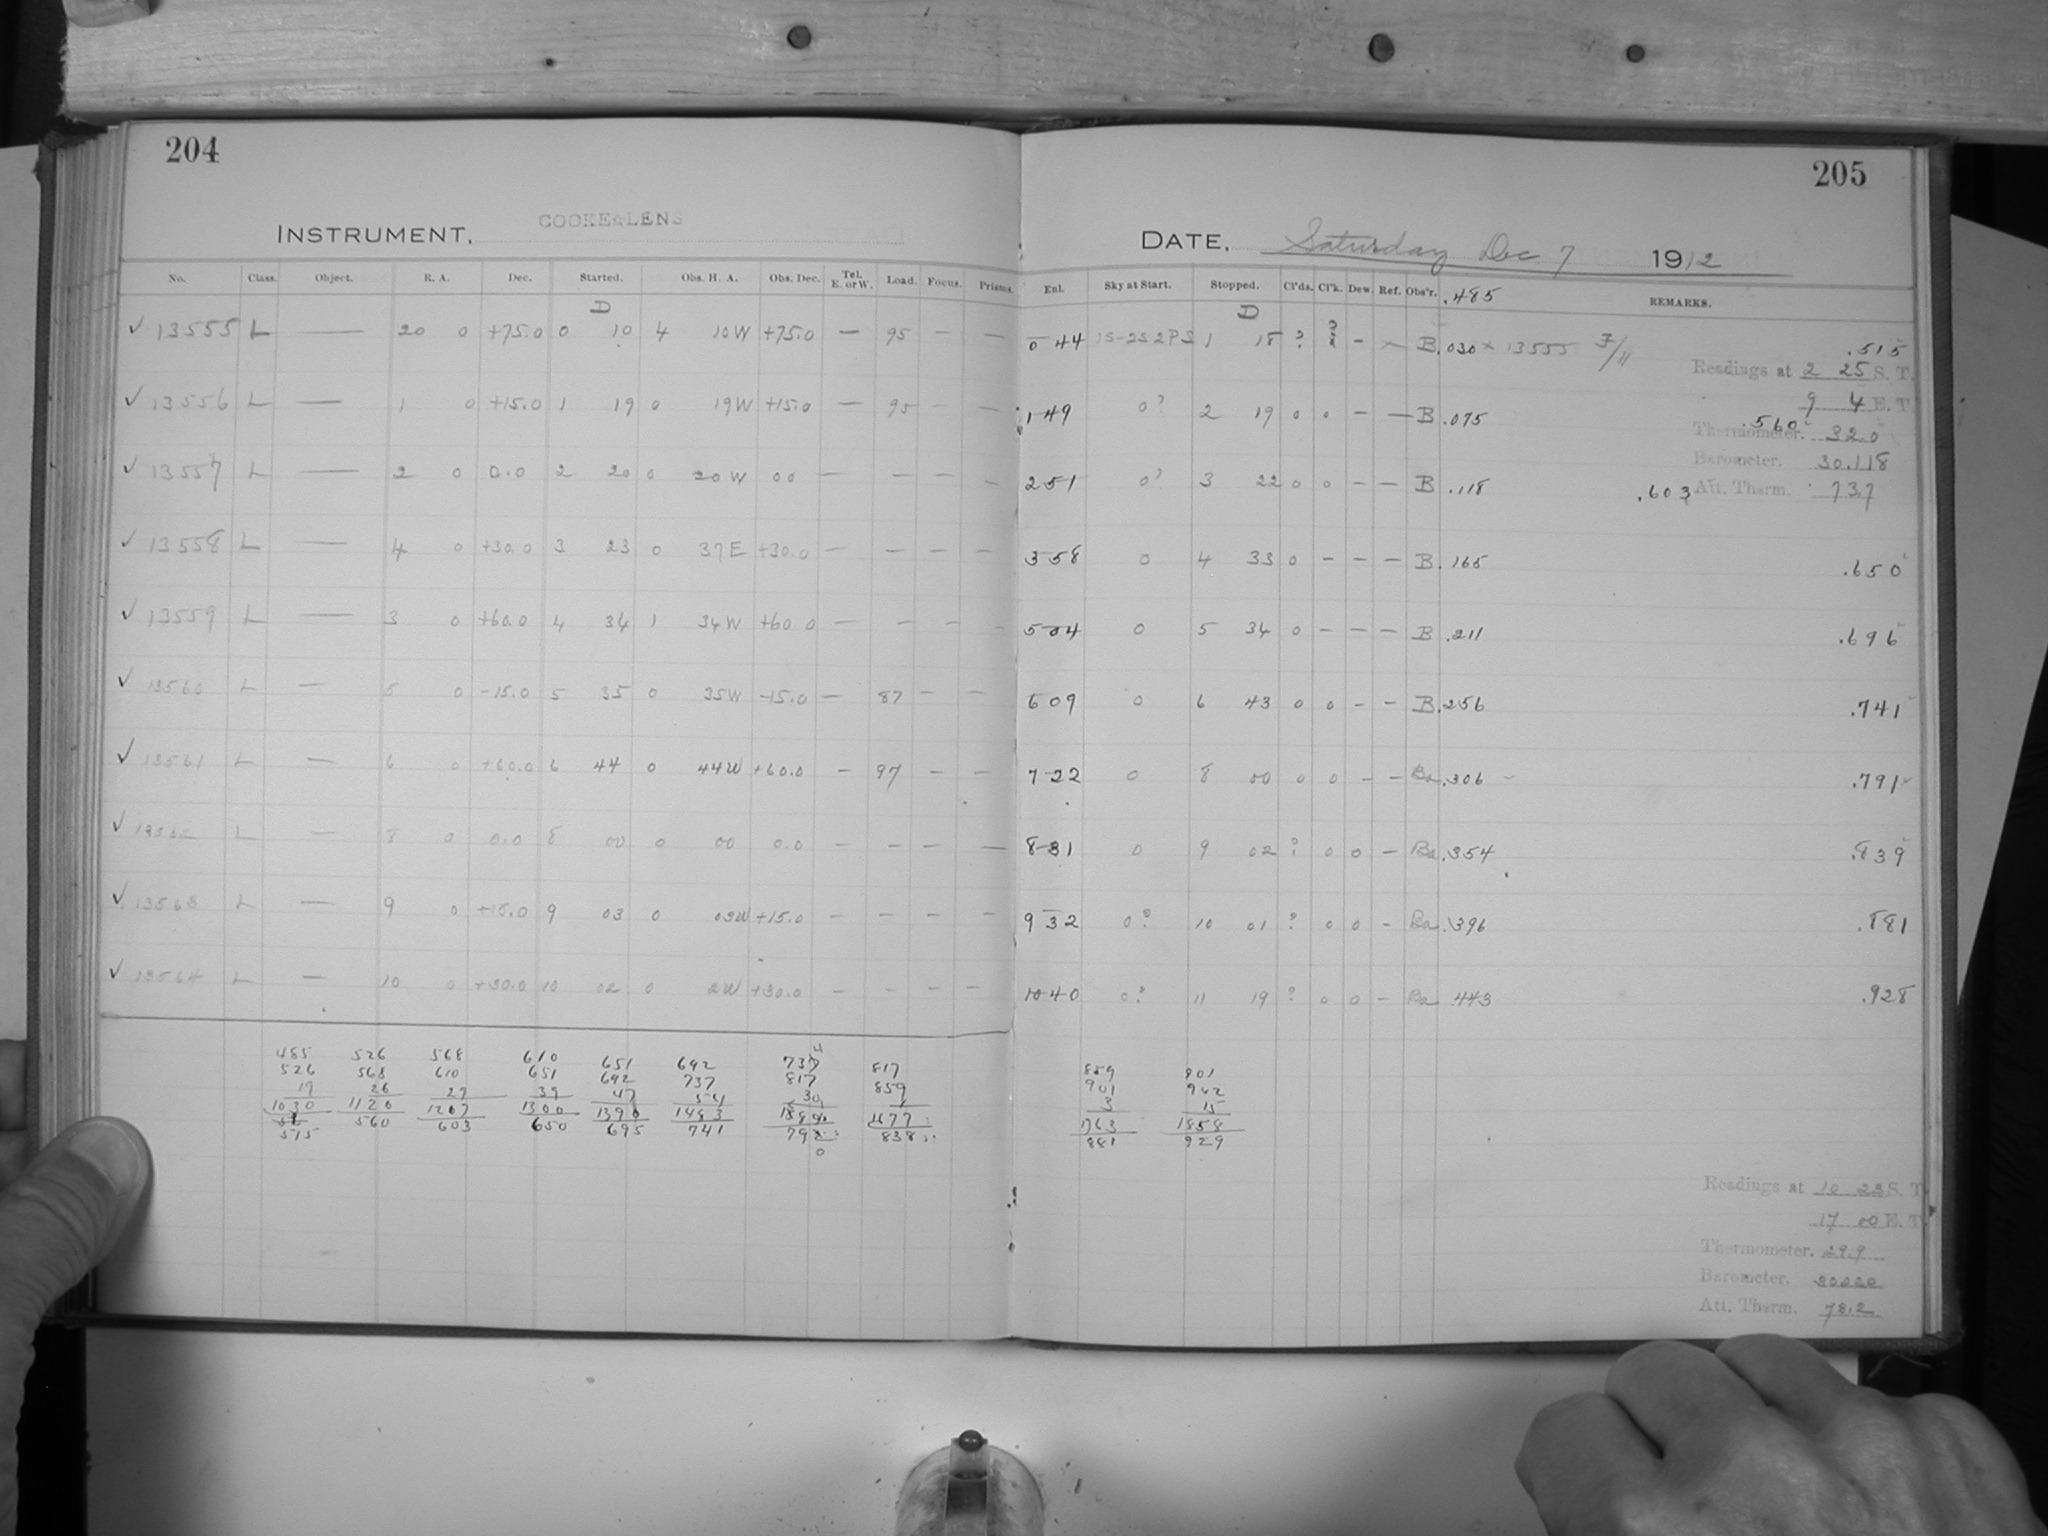 204
205
INSTRUMENT, COOKE LENS
DATE, Saturday Dec 7 1912
No. Class. Object. R. A. Dec. Started. Obs. H. A. Obs. Dec. Tel. E. or W. Load. Focus. Prisms. Enl. Sky at Start. Stopped. Cl'ds. Cl'k. Dew. Ref. Obs'r. .485 REMARKS.
D D
✓ 13555 L — 20 0 +75.0 0 10 4 10W +75.0 — 95 — — 0 44 1S-2S2PS 1 18 ? ? — × B .030 × 13555 .515
Readings at 2 25 S. T.
9 4 E. T.
✓ 13556 L — 1 0 +15.0 1 19 0 19W +15.0 — 95 — — 1 49 0? 2 19 0 0 — — B .075 .560
Thermometer. 32.0
Barometer. 30.118
✓ 13557 L — 2 0 0.0 2 20 0 20W 00 — — — — 2 51 0? 3 22 0 0 — — B .118 .603
Att. Therm. 73.7
✓ 13558 L — 4 0 +30.0 3 23 0 37E +30.0 — — — — 3 58 0 4 33 0 — — — B .165 .650
✓ 13559 L — 3 0 +60.0 4 34 1 34W +60 0 — — — — 5 04 0 5 34 0 — — — B .211 .696
✓ 13560 L — 5 0 -15.0 5 35 0 35W -15.0 — 87 — — 6 09 0 6 43 0 0 — — B .256 .741
✓ 13561 L — 6 0 +60.0 6 44 0 44W +60.0 — 97 — — 7 22 0 8 00 0 0 — — Ba .306 .791
✓ 13562 L — 8 0 0.0 8 00 0 00 0.0 — — — — 8 31 0 9 02 ? 0 0 — Ba .354 .839
✓ 13563 L — 9 0 +15.0 9 03 0 03W +15.0 — — — — 9 32 0? 10 01 ? 0 0 — Ba .396 .881
✓ 13564 L — 10 0 +30.0 10 02 0 2W +30.0 — — — — 10 40 0? 11 19 ? 0 0 — Ba .443 .928
485 526 568 610 651 692 737 817 859 901
526 568 610 651 692 737 817 859 901 942
19 26 29 39 47 54 3 15
1030 1120 1207 1300 1390 1483 1677 1763 1858
515 560 603 650 695 741 838 881 929
Readings at 10 23 S. T.
17 00 E. T.
Thermometer. 29.9
Barometer.
Att. Therm. 78.2